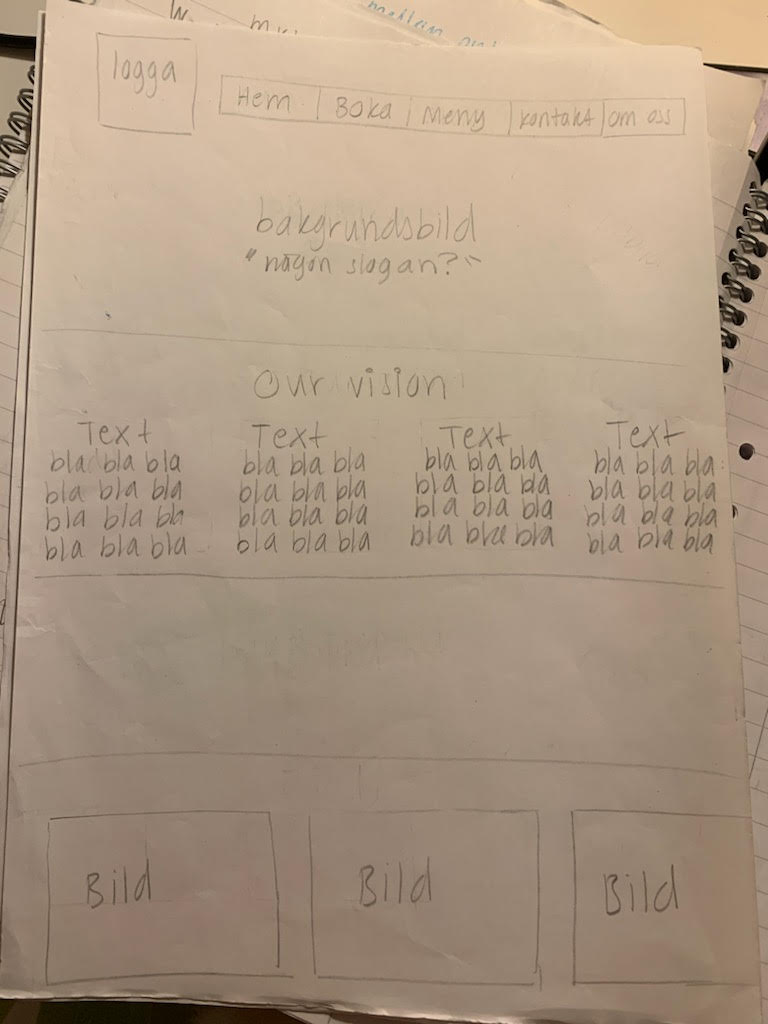 logga
Hem Boka Meny kontakt om oss
bakgrundsbild
"någon slogan?"
Our vision
Text Text Text Text
bla bla bla bla bla bla bla bla bla bla bla bla
bla bla bla bla bla bla bla bla bla bla bla bla
bla bla bla bla bla bla bla bla bla bla bla bla
bla bla bla bla bla bla bla bla bla bla bla bla
Bild Bild Bild